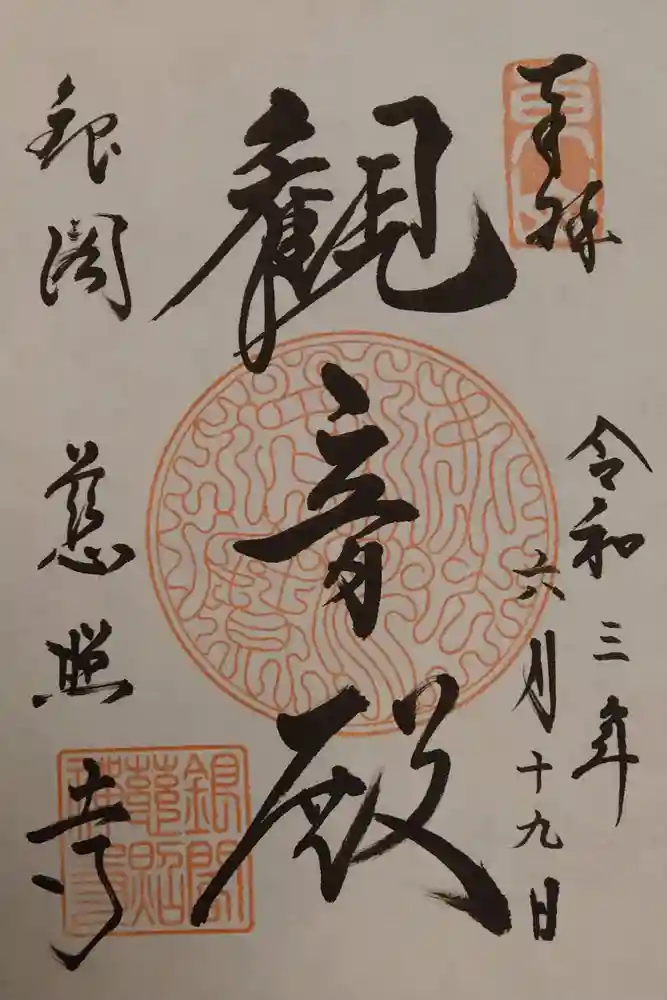 奉拝
令和三年
六月十九日
観音殿
銀閣
慈照寺
銀閣
慈照